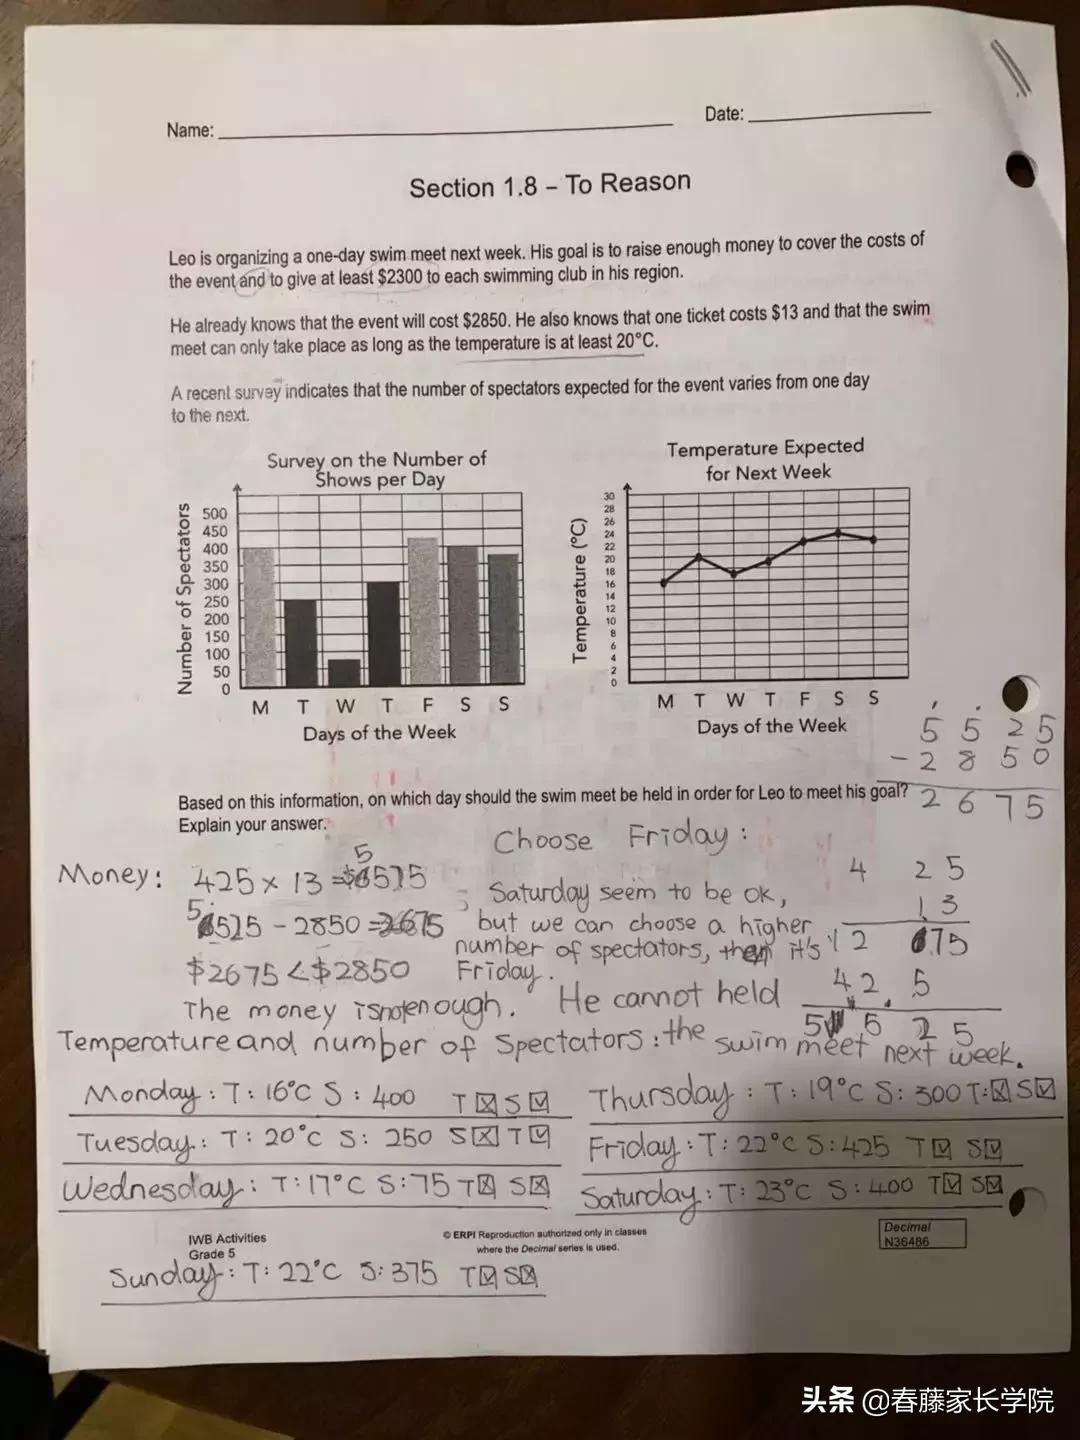 Name:
Date:
Section 1.8 – To Reason
Leo is organizing a one-day swim meet next week. His goal is to raise enough money to cover the costs of
the event and to give at least $2300 to each swimming club in his region.
He already knows that the event will cost $2850. He also knows that one ticket costs $13 and that the swim
meet can only take place as long as the temperature is at least 20°C.
A recent survey indicates that the number of spectators expected for the event varies from one day
to the next.
Survey on the Number of
Shows per Day
Number of Spectators
500
450
400
350
300
250
200
150
100
50
0
M T W T F S S
Days of the Week
Temperature Expected
for Next Week
Temperature (°C)
30
28
26
24
22
20
18
16
14
12
10
8
6
4
2
0
M T W T F S S
Days of the Week
5525
- 2850
2675
Based on this information, on which day should the swim meet be held in order for Leo to meet his goal?
Explain your answer.
Choose Friday:
Money: 425 × 13 = $5525
5525 - 2850 = 2675
$2675 < $2850
The money is not enough.
Saturday seem to be ok,
but we can choose a higher
number of spectators, then it's
Friday.
He cannot held
the swim meet next week.
425
13
1275
425
5525
Temperature and number of Spectators:
Monday: T: 16°C S: 400 T☒ S☑
Tuesday: T: 20°C S: 250 S☒ T☑
Wednesday: T: 17°C S: 75 T☒ S☒
Thursday: T: 19°C S: 300 T:☒ S☑
Friday: T: 22°C S: 425 T☑ S☑
Saturday: T: 23°C S: 400 T☑ S☑
IWB Activities
Grade 5
© ERPI Reproduction authorized only in classes
where the Decimal series is used.
Decimal
N36486
Sunday: T: 22°C S: 375 T☑ S☒
头条 @春藤家长学院